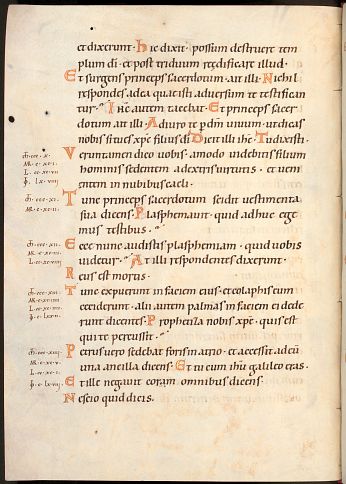 et dixerunt · hic dixit · possum destruere tem
plum di · et post triduum reędificare illud ·
Et surgens princeps sacerdotum · ait illi · Nichil
respondes ad ea quae isti adversum te testifican
tur · Ihc autem tacebat · Et princeps sacer
dotum ait illi · Adiuro te p dm vivum · ut dicas
nobis si tu es xpc filius di · Dicit illi ihc · Tu dixisti ·
Veruntamen dico vobis · amodo videbitis filium
hominis sedentem a dextris virtutis · et veni
entem in nubibus caeli ·
Tunc princeps sacerdotum scidit vestimenta
sua dicens · Plasphemavit · quid adhuc ege
mus testibus ·
Ecce nunc audistis plasphemiam · quid vobis
videtur · At illi respondentes dixerunt ·
Reus est mortis ·
Tunc expuerunt in faciem eius · et colaphis eum
ceciderunt · alii autem palmas in faciem ei dede
runt dicentes · Prophetiza nobis xpc · quis est
qui te percussit ·
Petrus vero sedebat foris in atrio · et accessit ad eū
una ancilla dicens · Et tu cum ihu galileo eras ·
Et ille negavit coram omnibus dicens ·
Nescio quid dicis ·